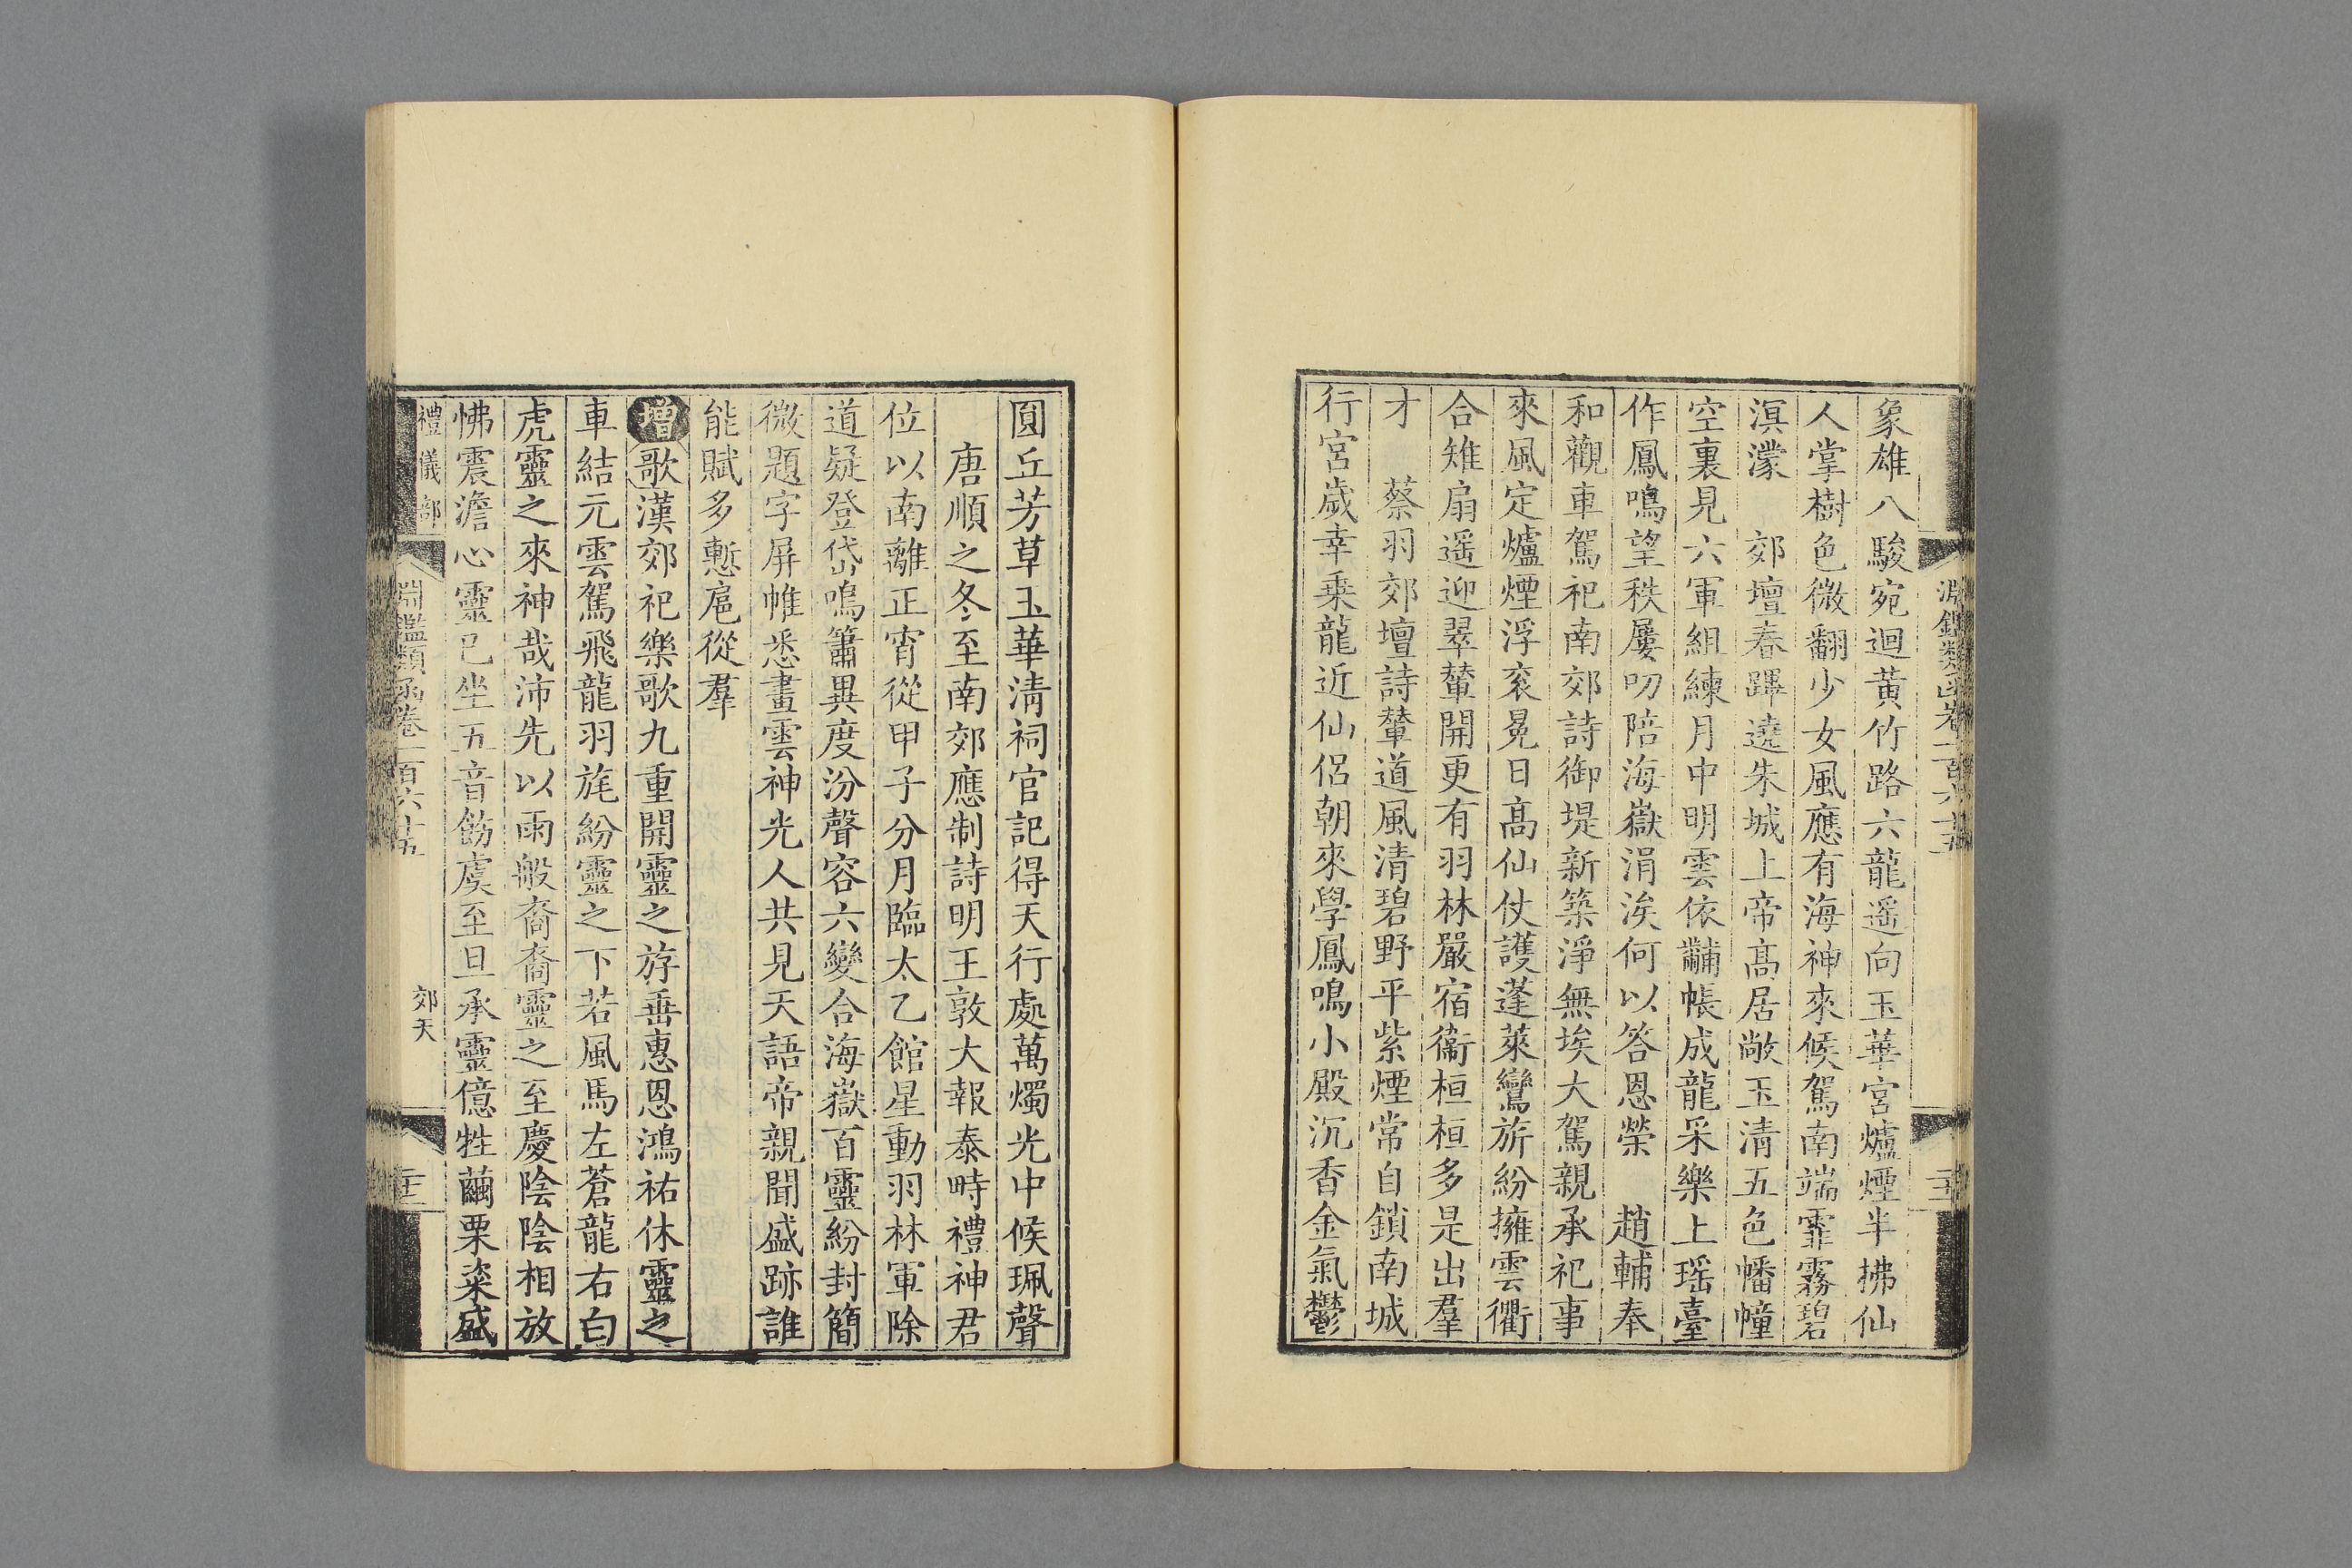 淵鑑類函卷一百六十五
象雄八駿宛迴黃竹路六龍遥向玉華宮爐煙半拂仙
人掌樹色微翻少女風應有海神來候駕南端霏霧碧
溟濛　郊壇春蹕遶朱城上帝髙居敞玉清五色幡幢
空裏見六軍組練月中明雲依黼帳成龍采樂上瑶臺
作鳳鳴望秩屢叨陪海嶽涓涘何以答恩榮　趙輔奉
和觀車駕祀南郊詩御堤新築淨無埃大駕親承祀事
來風定爐煙浮衮冕日髙仙仗護蓬萊鸞旂紛擁雲衢
合雉扇遥迎翠輦開更有羽林嚴宿衞桓桓多是出羣
才　蔡羽郊壇詩輦道風清碧野平紫煙常自鎖南城
行宮歲幸乗龍近仙侶朝來學鳳鳴小殿沉香金氣鬱
圓丘芳草玉華清祠官記得天行處萬燭光中候珮聲
唐順之冬至南郊應制詩明王敦大報泰畤禮神君
位以南離正宵從甲子分月臨太乙館星動羽林軍除
道疑登岱鳴簫異度汾聲容六變合海嶽百靈紛封簡
微題字屏帷悉畫雲神光人共見天語帝親聞盛跡誰
能賦多慙扈從羣
增歌漢郊祀樂歌九重開靈之斿垂惠恩鴻祐休靈之
車結元雲駕飛龍羽旄紛靈之下若風馬左蒼龍右白
虎靈之來神哉沛先以雨般裔裔靈之至慶陰陰相放
怫震澹心靈已坐五音飭虞至旦承靈億牲繭栗粢盛
禮儀部
淵鑑類函卷一百六十五
郊天